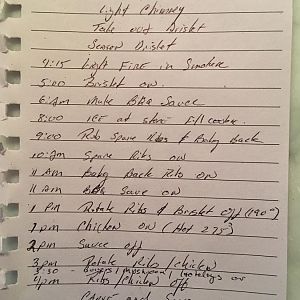 Light Chimney
Take out Brisket
Season Brisket
4:15 Light Fire in Smoker
5:00 Brisket on
6:am Make BBQ Sauce
8:00 ICE at store Fill cooler
9:00 Rub Spare Ribs & Baby Back
10:am Spare Ribs on
11 Am Baby Back Rib on
11 Am BBQ Sauce on
1 PM Rotate Ribs & Brisket off (190°)
1 pm Chicken on (Hot 275)
2 pm Sauce off
3 pm Rotate Ribs/Chicken
3:30 - Burgers / Mushroom / on
4 pm Ribs/Chicken off
and